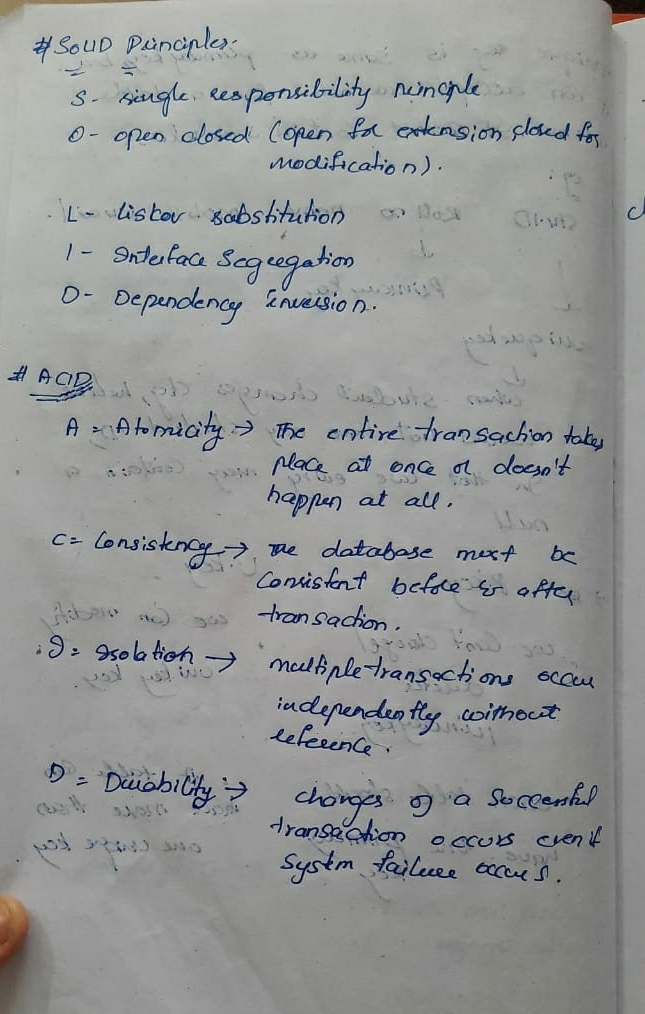 # SOLID Principles:-
S - single responsibility principle
O - open closed (open for extension closed for
modification).
L - liskov substitution
I - Interface Segregation
D - Dependency Inversion.
# ACID
A = Atomicity → The entire transaction takes
place at once or doesn't
happen at all.
C = Consistency → The database must be
Consistent before & after
transaction.
I = Isolation → multiple transactions occur
independently without
reference.
D = Durability → changes of a Successful
transaction occurs even if
System failure occurs.